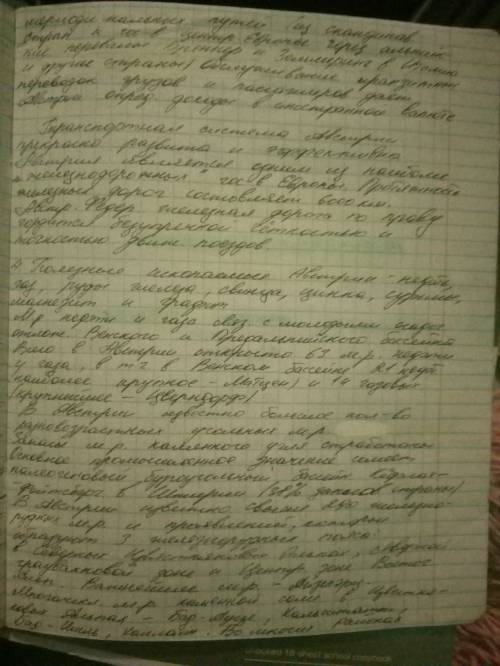 народн кальных путей (из скандинав.
стран и гос-в центр. Европы через альпий-
ские перевалы Бреннер и Земмеринг в Италию
и другие страны) обслуживание транзитных
перевозок грузов и пассажиров дает
Австрии опред. доходы в иностранной валюте
Транспортная система Австрии
прекрасно развита и эффективна
Австрия является одним из наиболее
"железнодорожных" гос-в Европы. Протяженность
железных дорог составляет 6000 км.
Австр. Федер. железная дорога по праву
гордится безупречной четкостью и
точностью движ. поездов.
4 Полезные ископаемые Австрии - нефть,
газ, руды железа, свинца, цинка, сурьмы,
магнезит и графит
М-р нефти и газа связ. с молодыми осадоч.
отлож. Венского и Предальпийского бассейна
Всего в Австрии открыто 63 м-р. нефти
и газа, в т.ч в Венском бассейне 21 нефт
(наиболее крупное - Матцен) и 14 газовых
(крупнейшее - Цверндорф)
В Австрии известно большое кол-во
разновозрастных угольных м-р
Запасы м-р. каменного угля отработаны
Основное промышленное значение имеет
палеогеновый буроугольный басейн Кёфлах-
Фойтсберг в Штирии (38% запасов страны)
В Австрии известно свыше 250 железно-
рудных м-р. и проявлений, которые
образуют 3 железорудных пояса:
в Северных Известняковых Альпах, Сл
граувакковой зоне и Центр. зоне Вост.
Альп. Важнейшее м-р. -
Многочисл. м-р. каменной соли в Известня-
ковых Альпах - Бад-Аусзе, Хальштатт,
Бад-Ишль, Халлайн. Во многих районах
school